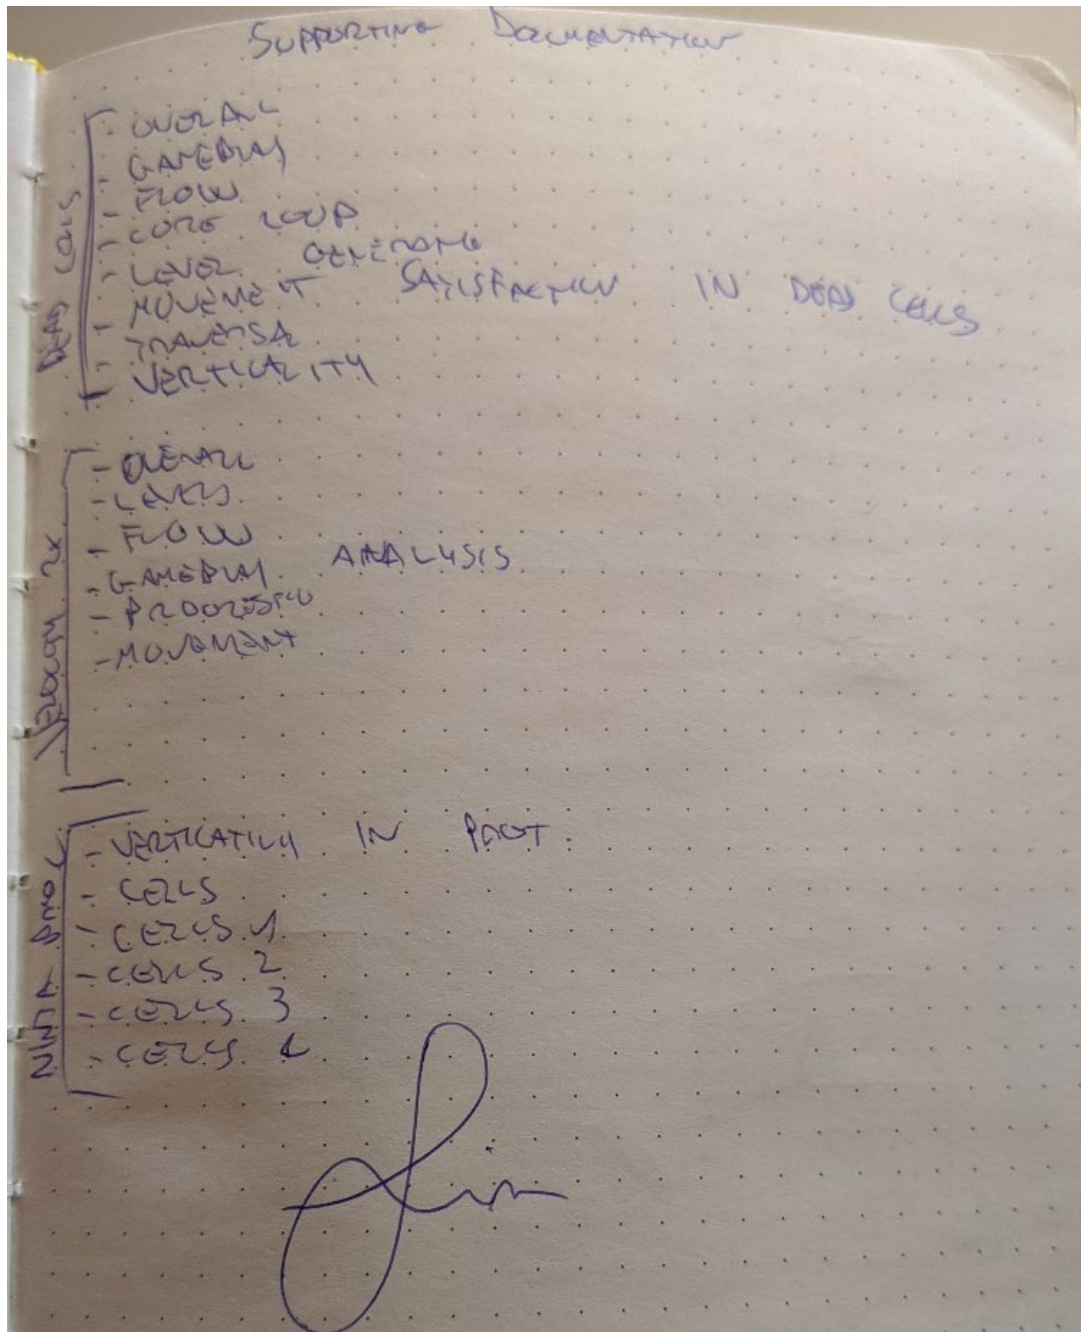 SUPPORTING DOCUMENTATION
DEAD CELLS
- OVERALL
- GAMEPLAY
- FLOW
- CORE LOOP
- LEVEL
- MOVEMENT SATISFACTION IN DEAD CELLS
- TRAVERSAL
- VERTICALITY
VELOCITY 2X
- OVERALL
- LEVELS
- FLOW
- GAMEPLAY ANALYSIS
- MOVEMENT
NINJA
- IN
- CELLS
- CELLS 1
- CELLS 2
- CELLS 3
- CELLS